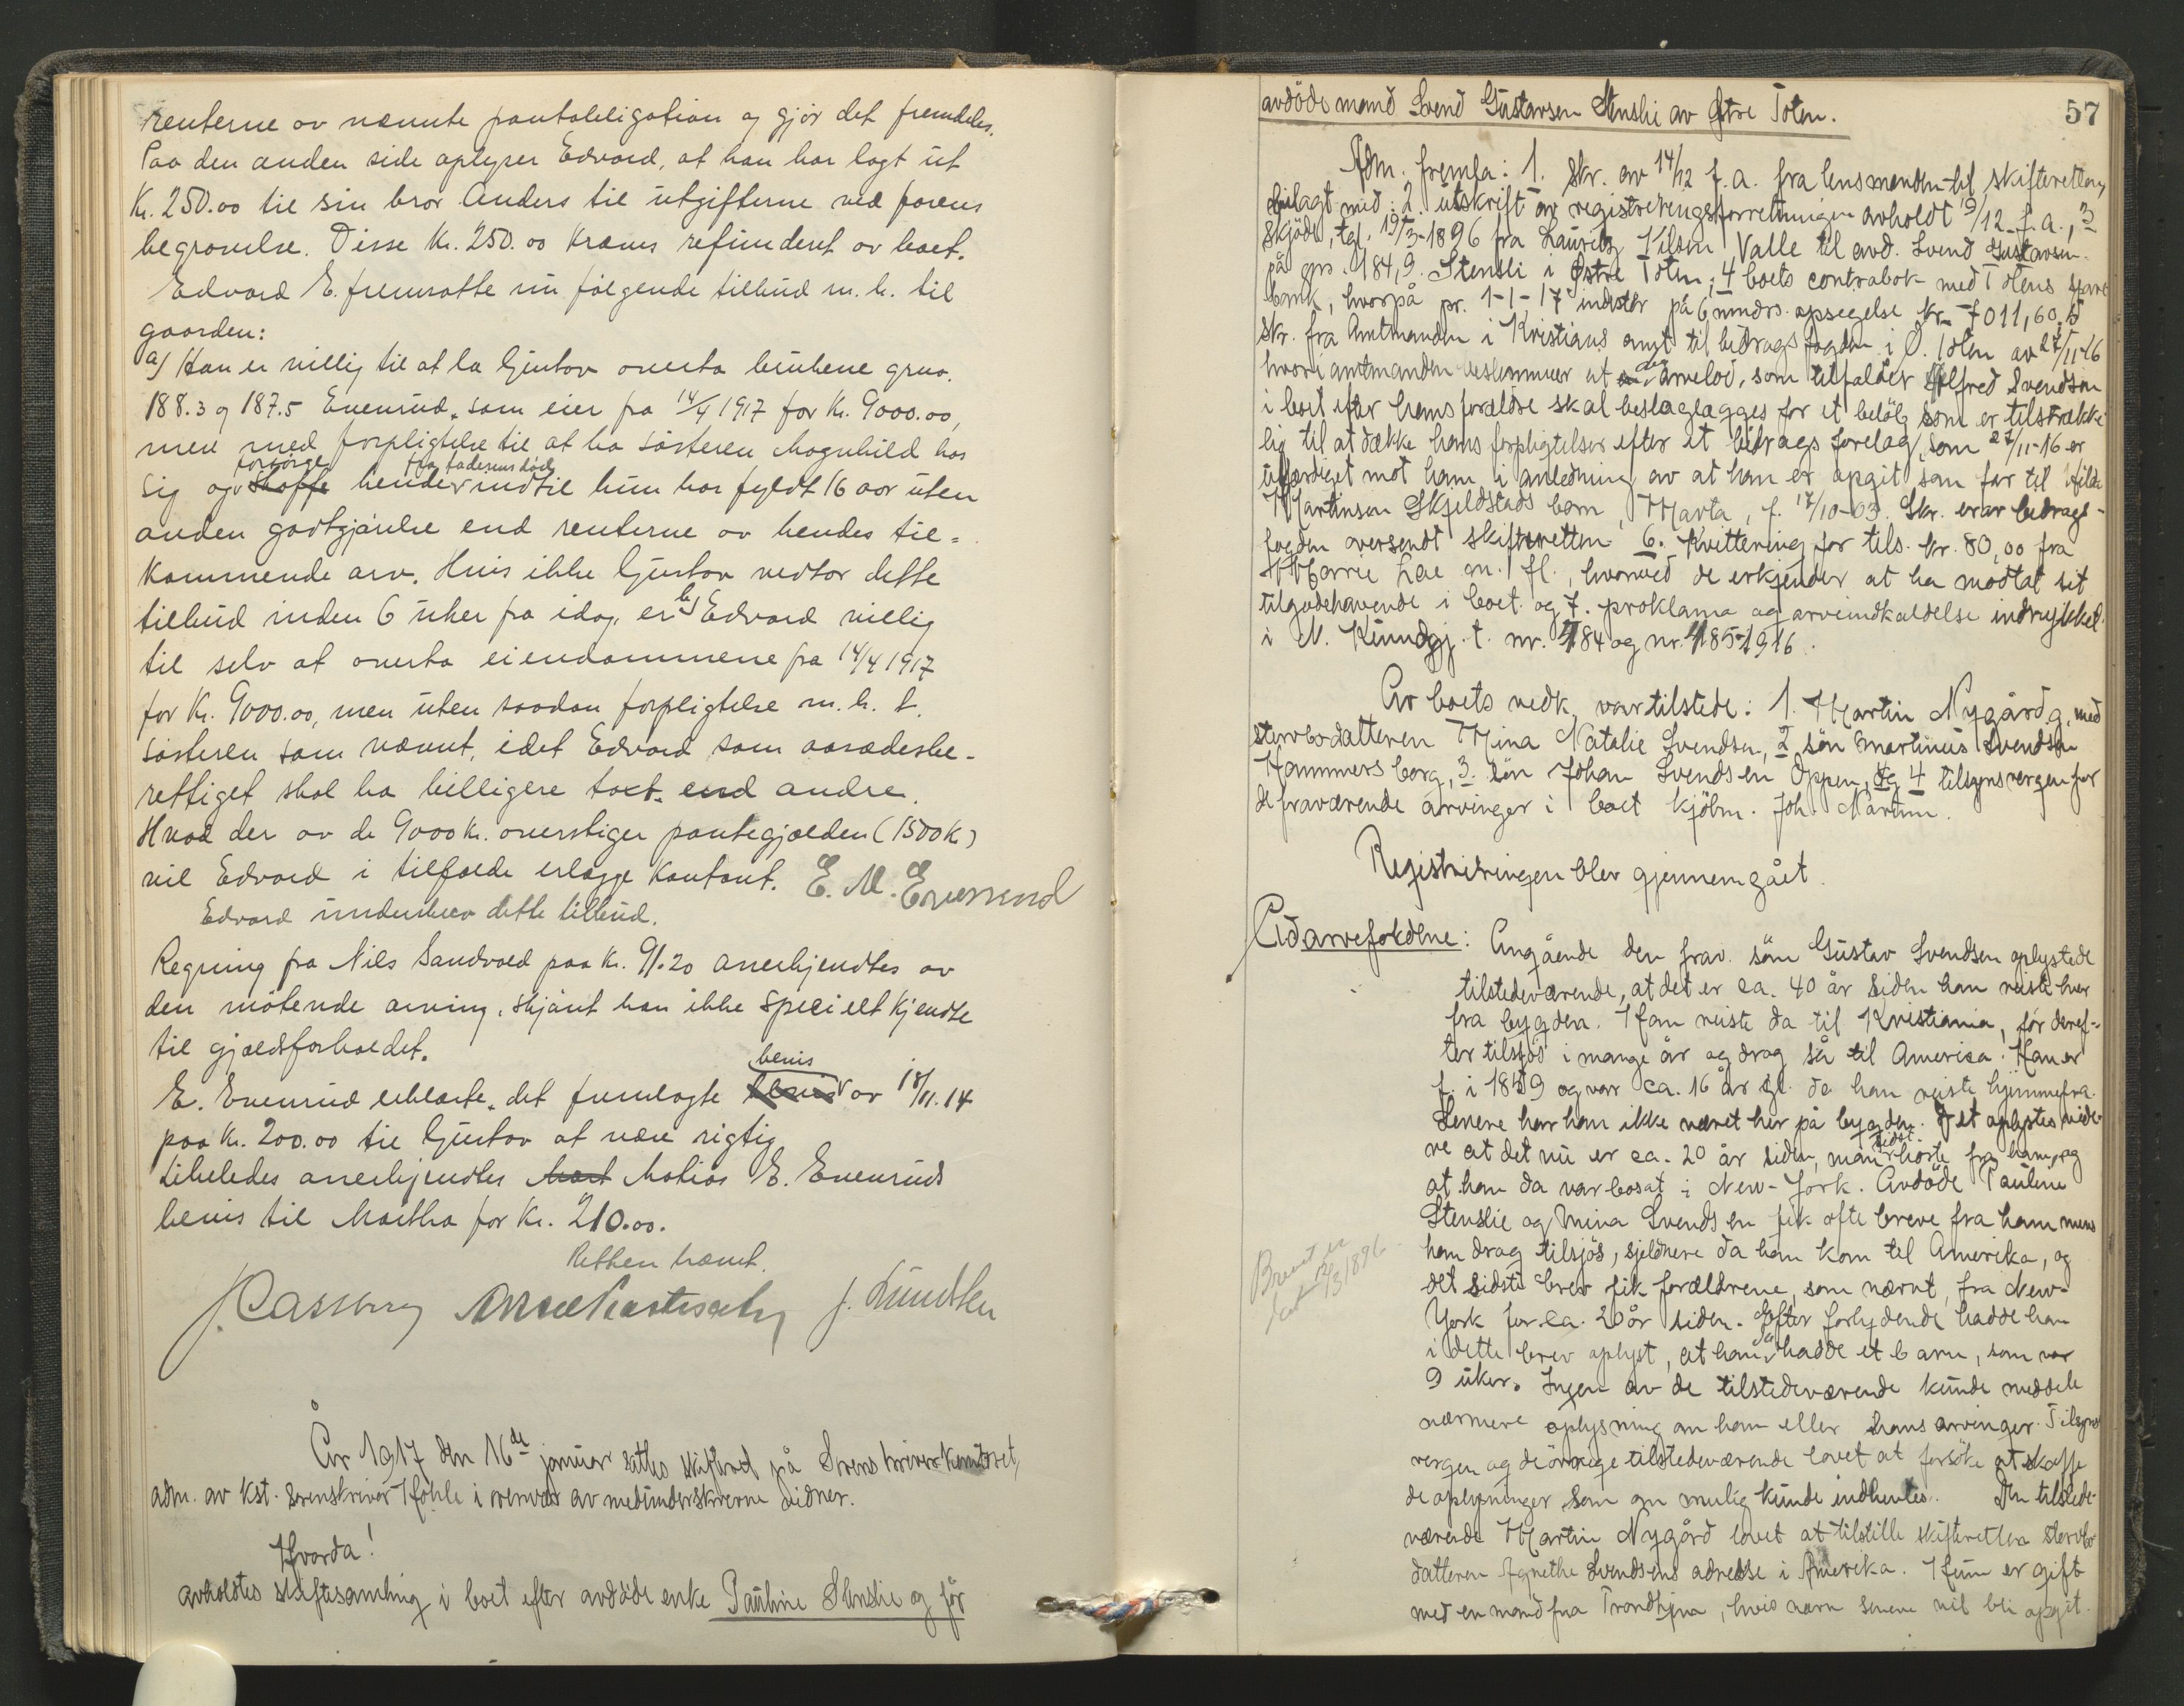 renterne av nævnte pantobligation og gjør det fremdeles.
Paa den anden side oplyser Edvard, at han har lagt ut
Kr. 250.00 til sin bror Anders til utgifterne ved farens
begravelse. Disse Kr. 250.00 kræves refunderet av boet.
Edvard E. fremsatte nu følgende tilbud m. h. til
gaarden:
a) Han er villig til at la Gustav overta brukene grno.
188.3 og 187.5 Evenrud, som eier fra 14/4 1917 for Kr. 9000.00,
men med forpligtelse til at ha søsteren Magnhild hos
sig og forsørge hende fra faderens død indtil hun har fyldt 16 aar uten
anden godtgjørelse end renterne av hendes til=
kommende arv. Hvis ikke Gustav vedtar dette
tilbud inden 6 uker fra idag, er b) Edvard villig
til selv at overta eiendommene fra 14/4 1917
for Kr. 9000.00, men uten saadan forpligtelse m. h. t.
søsteren som nævnt, idet Edvard som aasædesbe-
rettiget skal ha billigere takt. end andre.
Hvad der av de 9000 kr. overstiger pantegjælden (1500 K)
vil Edvard i tilfælde erlægge kontant. E. M. Evenrud
Edvard underskrev dette tilbud.
Regning fra Nils Sandvold paa Kr. 91.20 anerkjendtes av
den møtende arving, skjønt han ikke specielt kjendte
til gjældsforholdet.
E. Evenrud erklærte, det fremlagte bevis av 18/11.14
paa Kr. 200.00 til Gustav at være rigtig
Likeledes anerkjendtes Matias E. Evenruds
bevis til Martha for Kr. 210.00.
Retten hævet.
J. Lundsten

År 1917 den 16de januar sattes skifteret på Sorenskriverkontoret,
adm. av kst. sorenskriver Hohle i overvær av medunderskrevne vidner.
Hvorda!
avholdtes skiftesamling i boet efter avdøde enke Pauline Stenslie og før
57
avdøde mand Svend Gustavsen Stensli av Østre Toten.
Adm. fremla: 1. Skr. av 14/12 f. a. fra lensmanden til skifteretten,
bilagt med: 2. utskrift av registreringsforretningen avholdt 9/12 f. a., 3
skjøde, tgl. 19/3-1896 fra Lauritz Nilsen Valle til avd. Svend Gustavsen
på gno. 184,9. Stensli i Østre Toten; 4 boets contrabok med Totens spare
bank, hvorpå pr. 1-1-17 indestår på 6 mndrs. opsigelse kr. 7011,60, 5
skr. fra Amtmanden i Kristians amt til bidragsfogden i Ø. Toten av 27/11-16
hvori amtmanden bestemmer at den arvelod, som tilfalder Alfred Svendsen
i boet efter hans forældre skal beslaglægges for et beløb som er tilstrække
lig til at dække hans forpligtelser efter et bidrags forelag, som 27/11-16 er
utfærdiget mot ham i anledning av at han er opgit som far til Hilda
Martinsen Skjeldstads barn, Marta, f. 17/10-03. Skr. er av bidrags-
fogden oversendt skifteretten 6. Kvittering for tils. kr. 80,00 fra
Marie Lae m. fl., hvorved de erkjender at ha mottat sit
tilgodehavende i boet og 7. proklama og arveindkaldelse indrykket
i N. Kundgj. t. nr. 484 og nr. 485-1916.
Av boets vedk. var tilstede: 1. Martin Nygård g. med
stervbodatteren Mina Natalie Svendsen, 2 søn Martinus Svendsen
Hammersborg, 3. søn Johan Svendsen Oppen, og 4 tilsynsvergen for
de fraværende arvinger i boet kjøbm. Joh. Narum.
Registreringen blev gjennemgået.
Ad arveforholdene: Angående den frav. søn Gustav Svendsen oplystede
tilstedeværende, at det er ca. 40 år siden han reiste her
fra bygden. Han reiste da til Kristiania, fór deref-
ter tilsjøs i mange år og drog så til Amerika. Han er
f. i 1859 og var ca. 16 år gl. da han reiste hjemmefra.
Senere har han ikke været her på bygden. Det oplystes vide-
re at det nu er ca. 20 år siden, man sidst hørte fra ham, og
at han da var bosat i New-York. Avdøde Pauline
Stenslie og Mina Svendsen fik ofte breve fra ham mens
han drog tilsjøs, sjeldnere da han kom til Amerika, og
det sidste brev fik forældrene, som nævnt, fra New-
York for ca. 20 år siden. Efter forlydende hadde han
i dette brev oplyst, at han da hadde et barn, som var
9 uker. Ingen av de tilstedeværende kunde meddele
nærmere oplysning om ham eller hans arvinger. Tilsyns
vergen og de øvrige tilstedeværende lovet at forsøke at skaffe
de oplysninger som om mulig kunde indhentes. Den tilstede-
værende Martin Nygård lovet at tilstille skifteretten stervbo-
datteren Agnethe Svendsens adresse i Amerika. Hun er gift
med en mand fra Trondhjem, hvis navn senere vil bli opgit.
Brevet er
datert 2/3 1896